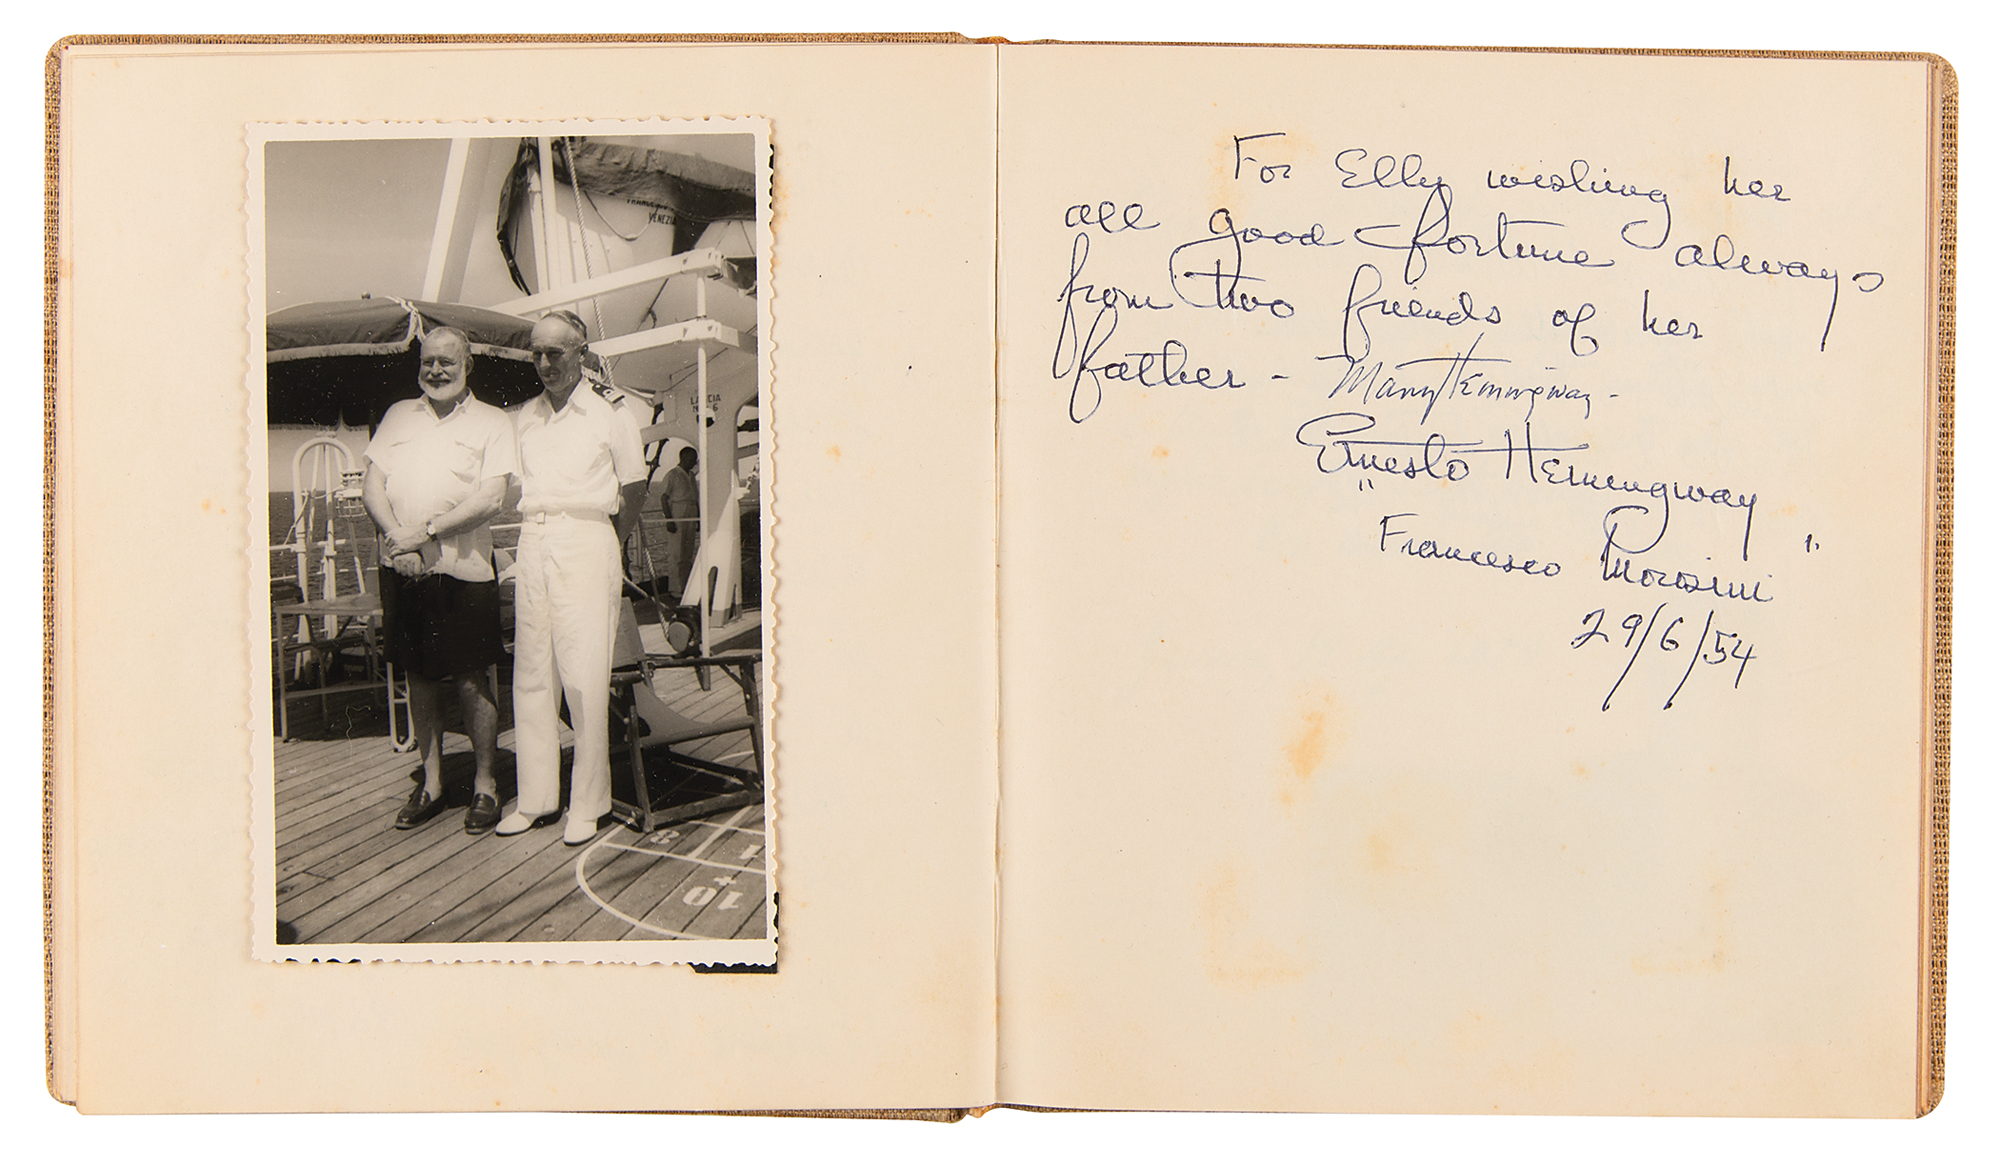 VENEZIA
LANCIA
No 6
8
1
10
For Elly wishing her
all good fortune always
from two friends of her
father - Mary Hemingway -
Ernesto Hemingway
" Francesco Morosini "
29/6/54